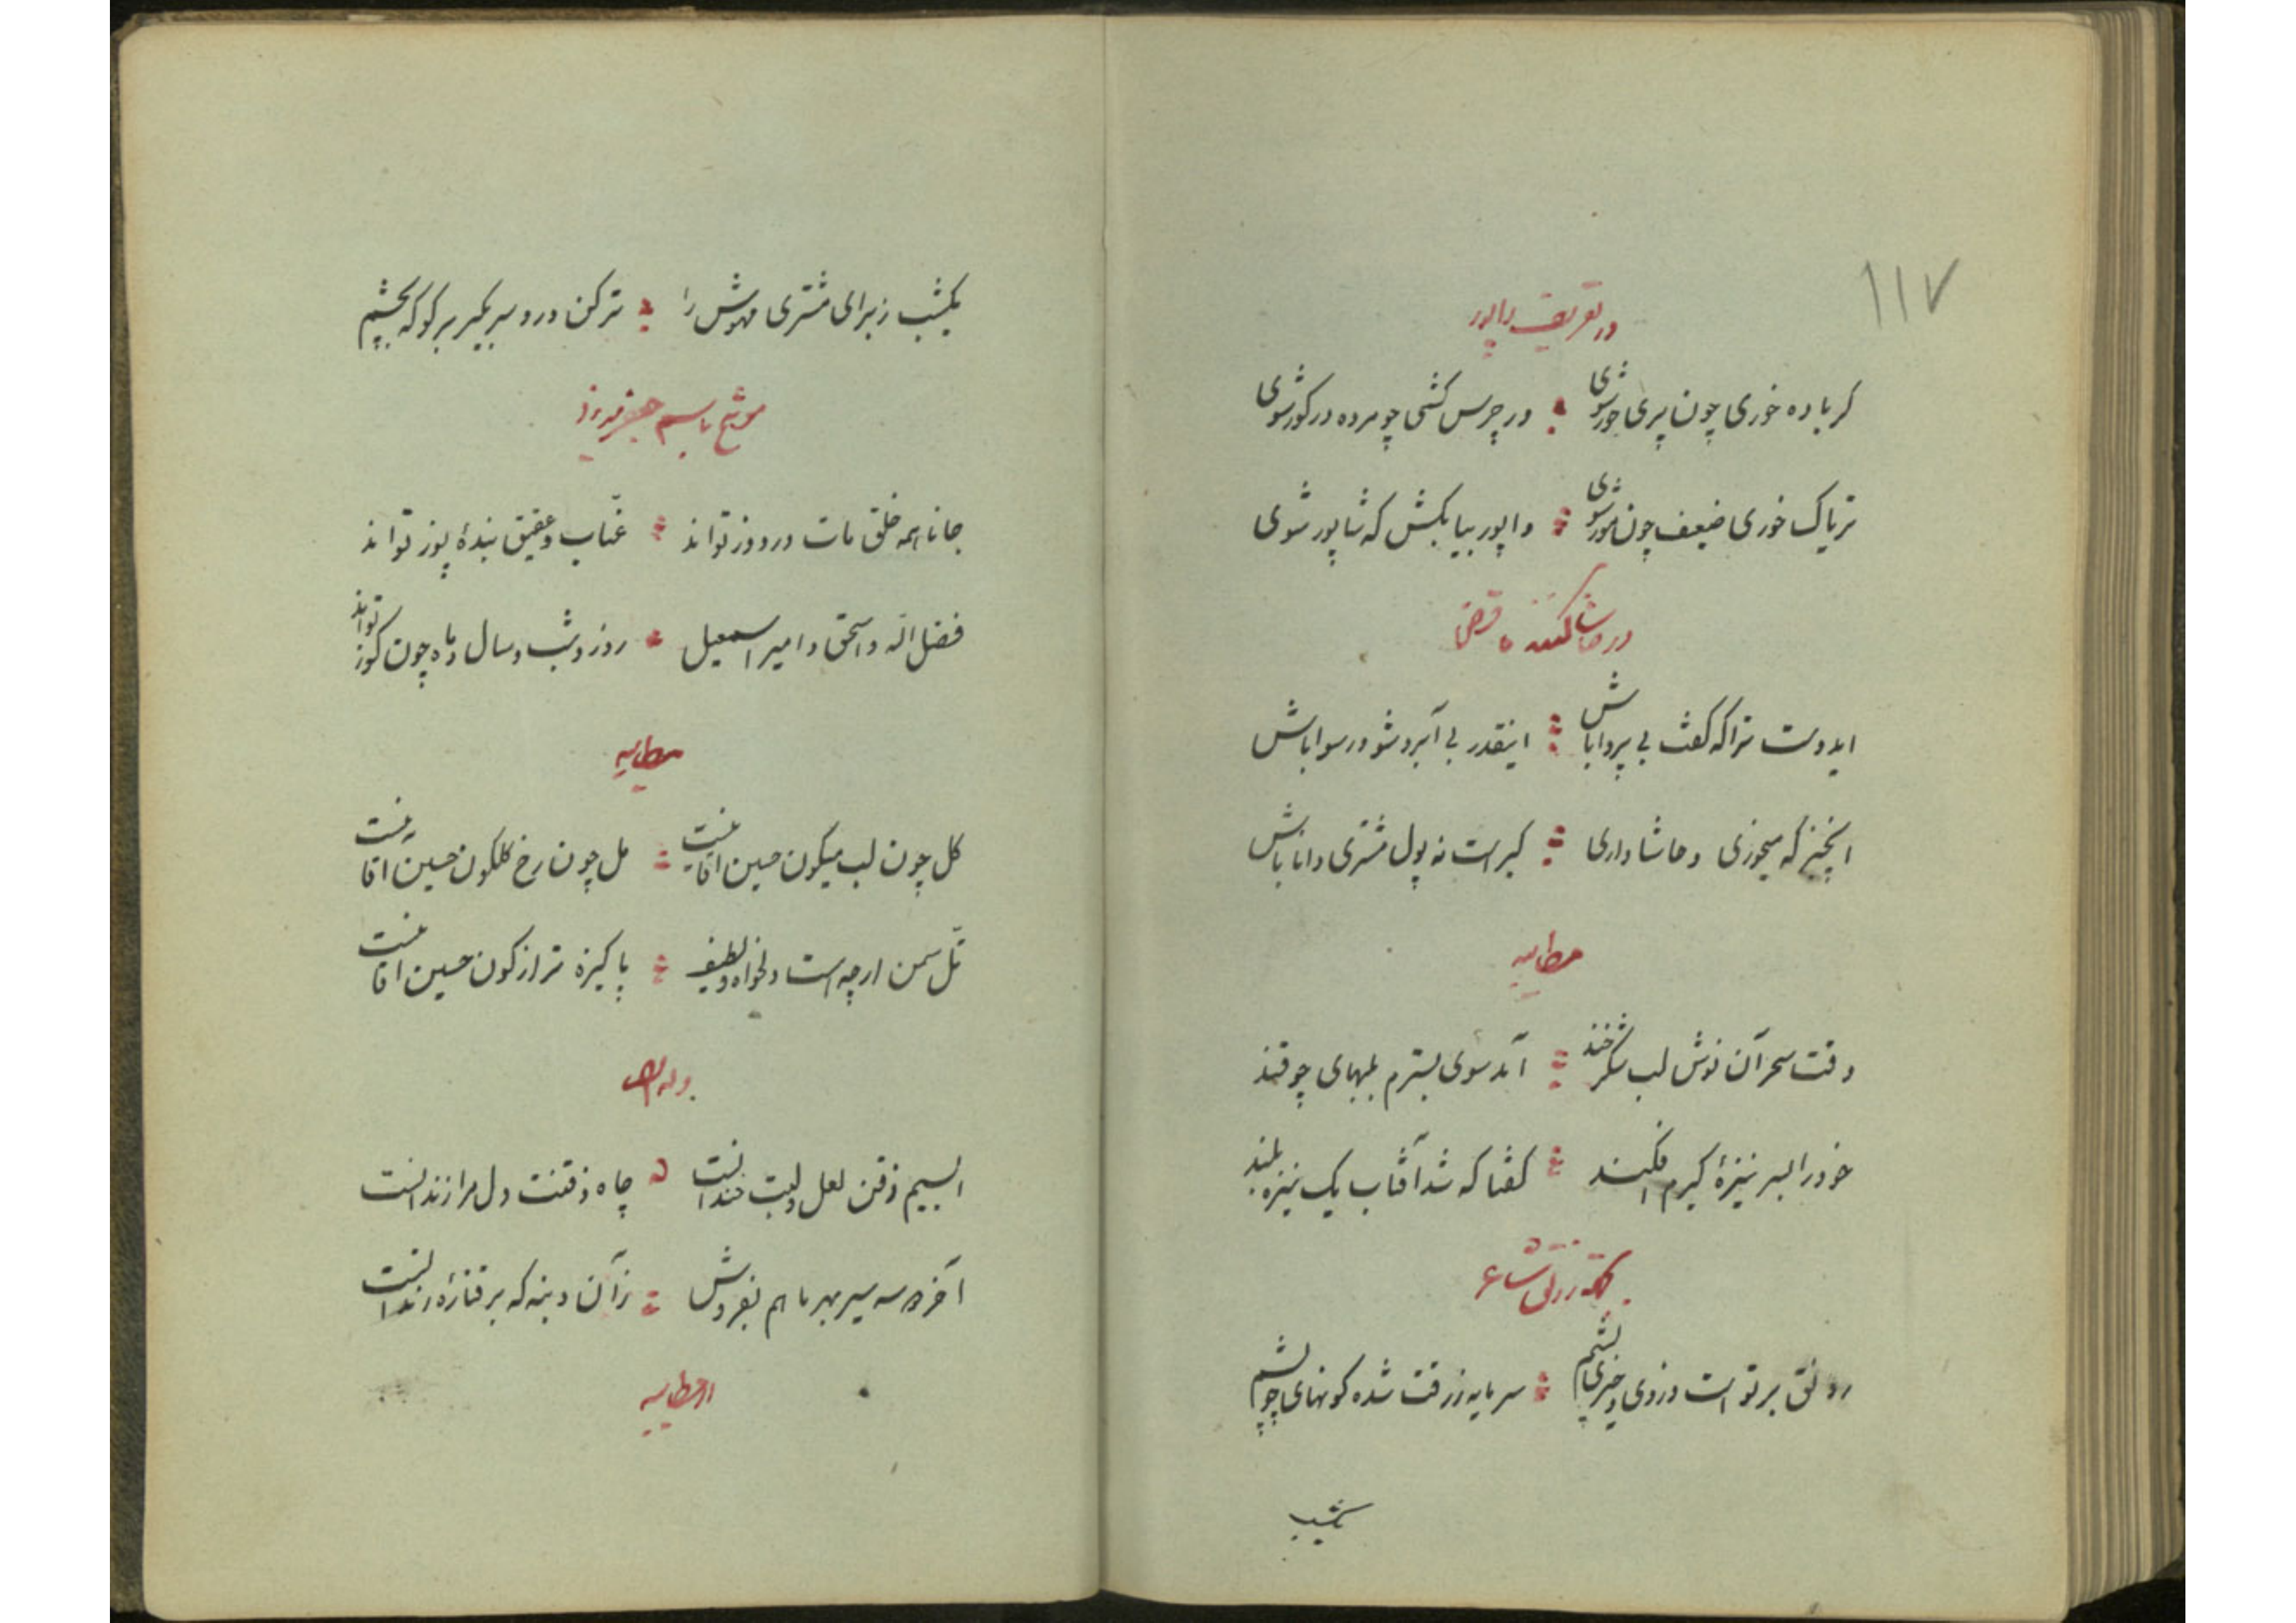 ۱۱۷
در تعریف وافور
کر باده خوری چون پری حور شوی در چرس کشی چو مرده در کور شوی
تریاک خوری ضعیف چون مور شوی وافور بیا بکش که شاپور شوی
در حاشا کننده قرض
ایدوست ترا که کفت بی پروا باش اینقدر بی آبرو شو و رسوا باش
اینچیز که میخوری و حاشا داری کیر است نه پول مشتری دانا باش
مطایبه
وقت سحر آن نوش لب شکر خند آمد سوی بسترم بلبهای چو قند
خود را بسر نیزهٔ کیرم افکند کفتا که شد آفتاب یک نیزه بلند
رونق بر تو است دزدی و خیزی پشم سرمایه رزقت شده کونهای چو پشم
یکشب
یکشب زبرای مشتری مهوش را ترکن در و سر بکیر بر کو که بچشم
موشح باسم جعفر
جانا همه خلق مات در و وز تواند عناب و عقیق بندهٔ پوز تواند
فضل اله و اسحق و امیر اسمعیل روز و شب و سال و ماه چون کوز تواند
مطایبه
کل چون لب میکون حسین اقا نیست مل چون رخ کلکون حسین اقا نیست
تل سمن ارچه است دلخواه و لطیف پاکیزه تر از کون حسین اقا نیست
وله ایضا
ای سیم ذقن لعل لبت خندانست چاه ذقنت دل مرا زندانست
آخر سه سیر بهر ما هم بفروش زآن دنبه که بر قنارهٔ رندانست
مطایبه